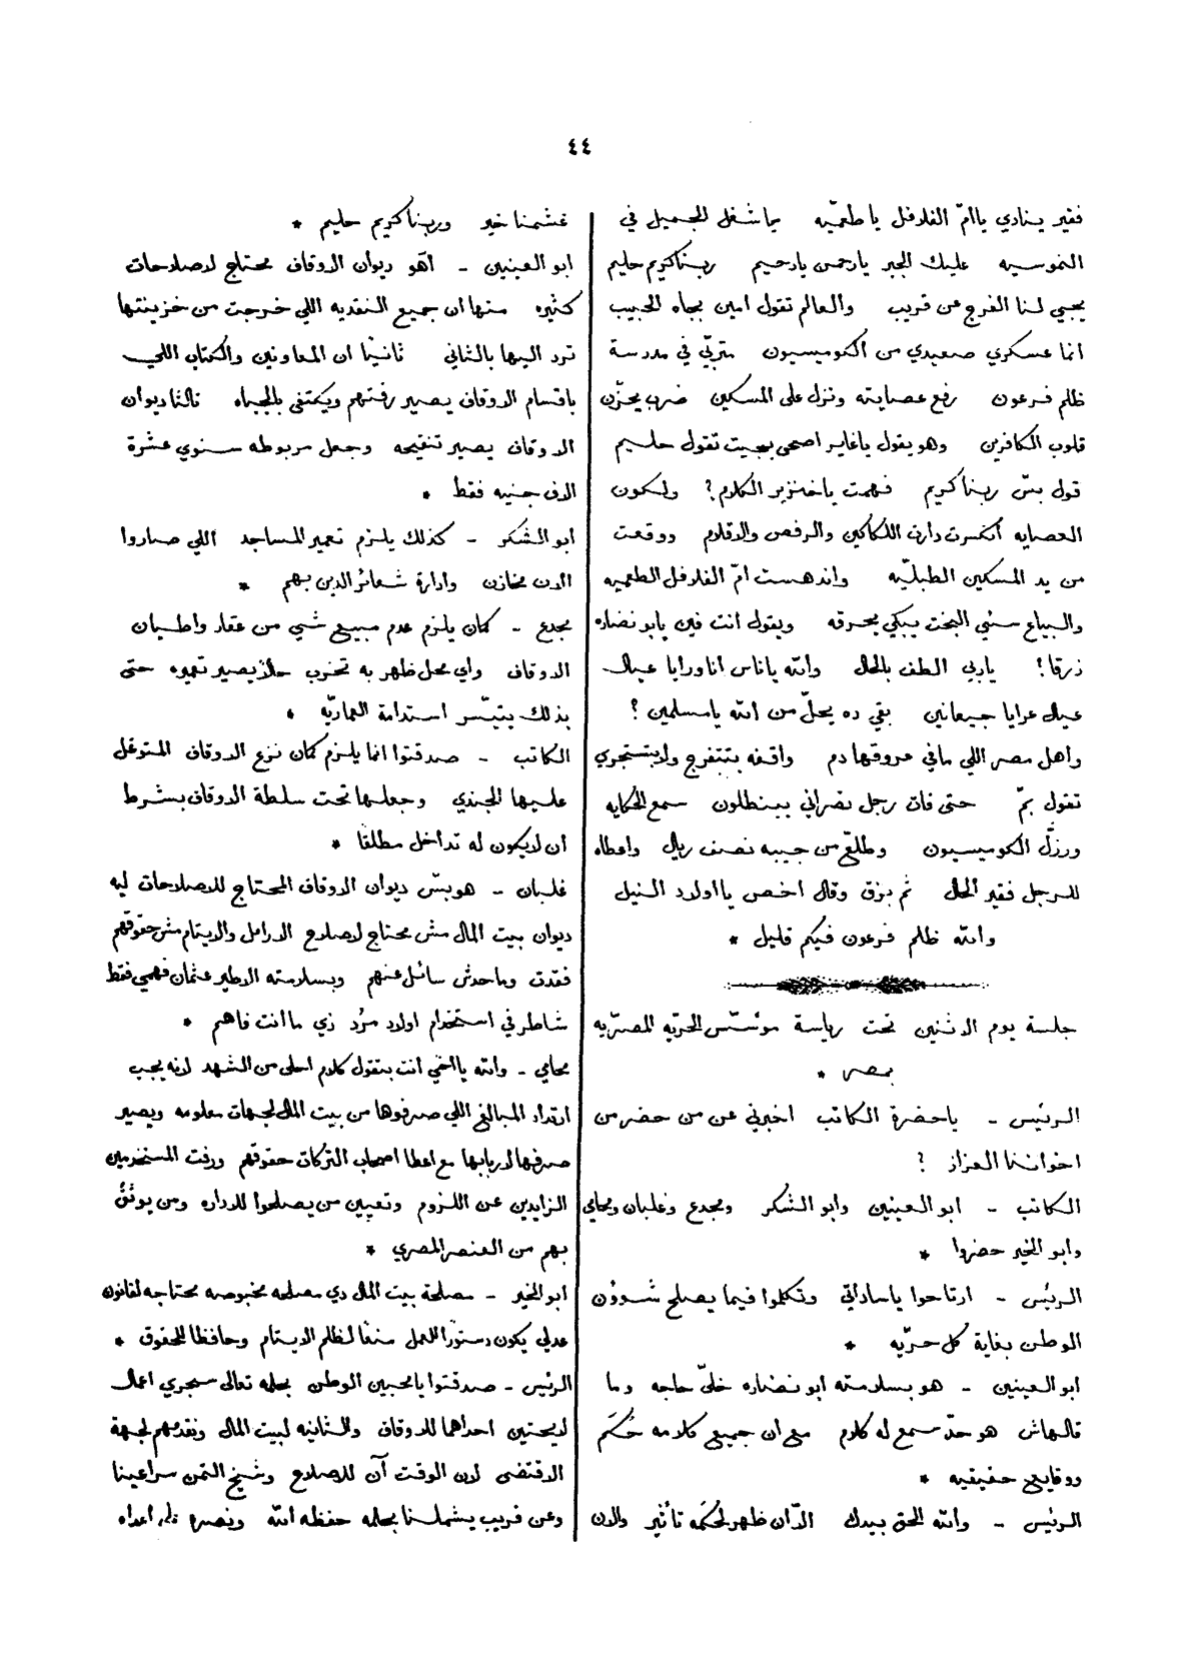 ٤٤
فقير ينادي ياامّ الفلافل ياطعميّه ياشغل الجميل في
الناموسيه عليك الجبر يارحمن يارحيم ربنا كريم حليم
يجبي لنا الفرج عن قريب والعالم تقول امين بجاه الحبيب
انما عسكري صعيدي من الكوميسيون متربّي في مدرسة
ظلم فرعون رفع عصايته ونزل على المسكين ضرب يحزّن
قلوب الكافرين وهو يقول ياغاير اصحى بجيت تقول حليم
قول بسّ ربنا كريم فهمت ياخنزير الكلام؟ ولكون
العصايه انكسرت دارت اللكاكين والرفص والاقلام ووقعت
من يد المسكين الطبليّه واندهست امّ الفلافل الطعميه
والبياع سئي البخت يبكي بحرقه ويقول انت فين يابو نضاره
زرقا! ياربي الطف بالحال والله ياناس انا ورايا عيال
عيال عرايا جيعانين بقي ده يحلّ من الله يامسلمين؟
واهل مصر اللي مافي عروقها دم واقفه بتتفرج ولابتستجري
تقول بمّ حتى فات رجل نصراني ببنطلون سمع الحكايه
ورزّل الكوميسيون وطلّع من جيبه نصف ريال واعطاه
للرجل فقير الحال ثم بزق وقال اخص يااولاد النيل
والله ظلم فرعون فيكم قليل *
جلسة يوم الاثنين تحت رياسة موئسّس الحريّه المصريّه
بمصر *
الرئيس - ياحضرة الكاتب اخبرني عن من حضر من
اخواننا العزاز ?
الكاتب - ابو العينين وابو الشكر ومجدع وغلبان ومحامي
وابو الخير حضروا *
الرئيس - ارتاحوا ياساداتي وتكلموا فيما يصلح شوؤن
الوطن بغاية كل حريّه *
ابو العينين - هو بسلامته ابو نضاره خلىّ حاجه وما
قالهاش هو حدّ سمع له كلام مع ان جميع كلامه حُكَم
ووقايع حقيقيه *
الرئيس - والله الحق بيدك الاّن ظهر لحكمَه تأثير والان
غشمنا خير وربنا كريم حليم *
ابو العينين - اهَو ديوان الاوقاف محتاج لاصلاحات
كثيره منها ان جميع النقديه اللي خرجت من خزينتها
ترد اليها بالثاني ثانيًا ان المعاونين والكتاب اللي
باقسام الاوقاف يصير رفتهم ويكتفى بالجباه ثالثا ديوان
الاوقاف يصير تنقيحه وجعل مربوطه سنوي عشرة
الاف جنيه فقط *
ابو الشكر - كذلك يلزم تعمير المساجد اللي صاروا
الان مخازن وادارة شعائر الدين بهم *
مجدع - كمان يلزم عدم مبيع شي من عقار واطيان
الاوقاف واي محل ظهر به تخرب حالاً يصير تعميره حتى
بذلك يتيسّر استدامة العماريّه *
الكاتب - صدقتوا انما يلزم كمان نزع الاوقاف المتوغل
عليها الجندي وجعلها تحت سلطة الاوقاف بشرط
ان لايكون له تداخل مطلقًا *
غلبان - هو بسّ ديوان الاوقاف المحتاج للاصلاحات ليه
ديوان بيت المال مش محتاج لاصلاح الارامل والايتام مش حقوقهم
فقدت وماحدش سائل عنهم وبسلامته الاطير عثمان فهمي فقط
شاطر في استخدام اولاد مرُد زي ماانت فاهم *
محامي - والله يااخي انت بتقول كلام احلى من الشهد لانه يجب
ارتداد المبالغ اللي صرفوها من بيت المال لجهات معلومه ويصير
صرفها لاربابها مع اعطا اصحاب التركات حقوقهم ورفت المستخدمين
الزايدين عن اللزوم وتعيين من يصلحوا للاداره ومن يوثقُ
بهم من العنصر المصري *
ابو الخير - مصلحة بيت المال دي مصلحه مخبوصه محتاجه لقانون
عدلي يكون دستورًا للعمل منعًا لظلم الايتام وحافظًا للحقوق *
الرئيس - صدقتوا يامحبين الوطن بحلمه تعالى سنجري اعمال
لايحتين احداهما للاوقاف والثانيه لبيت المال ونقدمهم لجهة
الاقتضى لان الوقت آن للاصلاح وشيخ التمن سراعينا
وعن قريب يشملنا بحلمه حفظه الله ونصره على اعداه